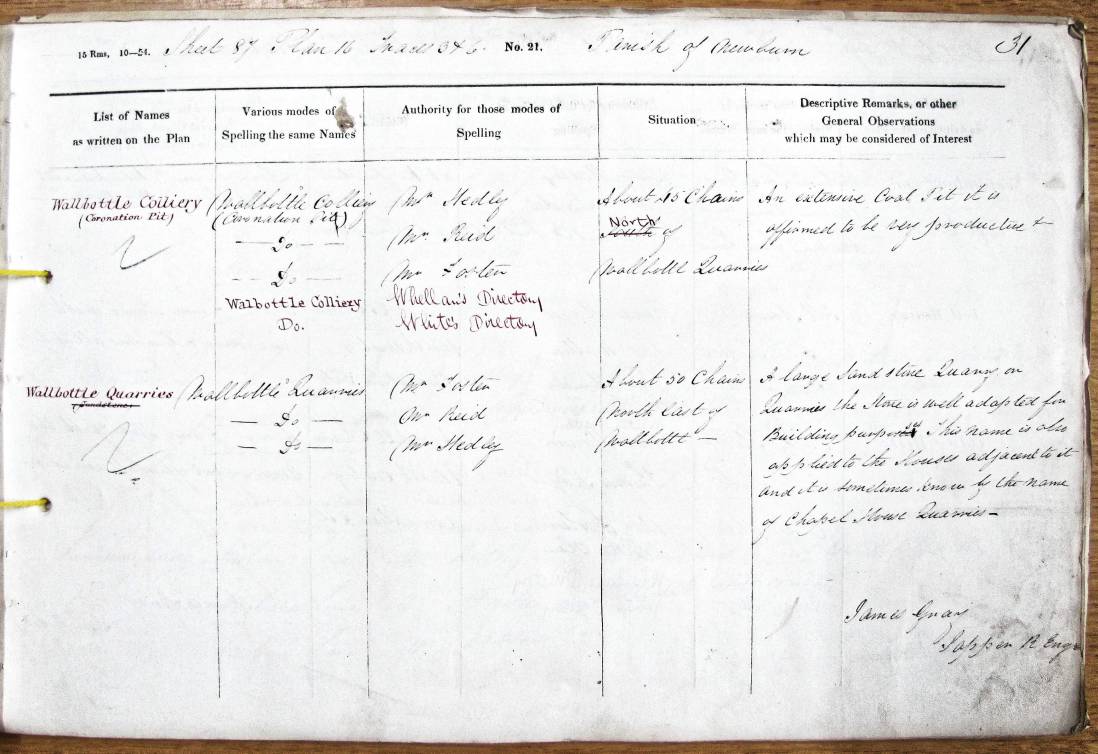 15 Rms, 10—54. Sheet 87 Plan 16 Traces 3 & 6 No. 21. Parish of Newburn 31
List of Names
as written on the Plan
Various modes of
Spelling the same Names
Authority for those modes of
Spelling
Situation
Descriptive Remarks, or other
General Observations
which may be considered of Interest
Wallbottle Colliery
(Coronation Pit)
Wallbottle Colliery
(Coronation Pit)
— Do —
— Do —
Walbottle Colliery
Do.
Mr. Hedley
Mr. Reid
Mr Foster
Whellan's Directory
White's Directory
About 45 Chains
North
South of
Wallbottle Quarries
An extensive Coal Pit it is
affirmed to be very productive
Wallbottle Quarries
Sandstone
Wallbottle Quarries
— Do —
— Do —
Mr Foster
Mr Reid
Mr Hedley
About 50 Chains
North East of
Wallbottle —
A large Sand stone Quarry or
Quarries the Stone is well adapted for
Building purposes This name is also
applied to the Houses adjacent to it
and it is sometimes known by the name
of Chapel House Quarries —
James Gray
Sapper R Engs